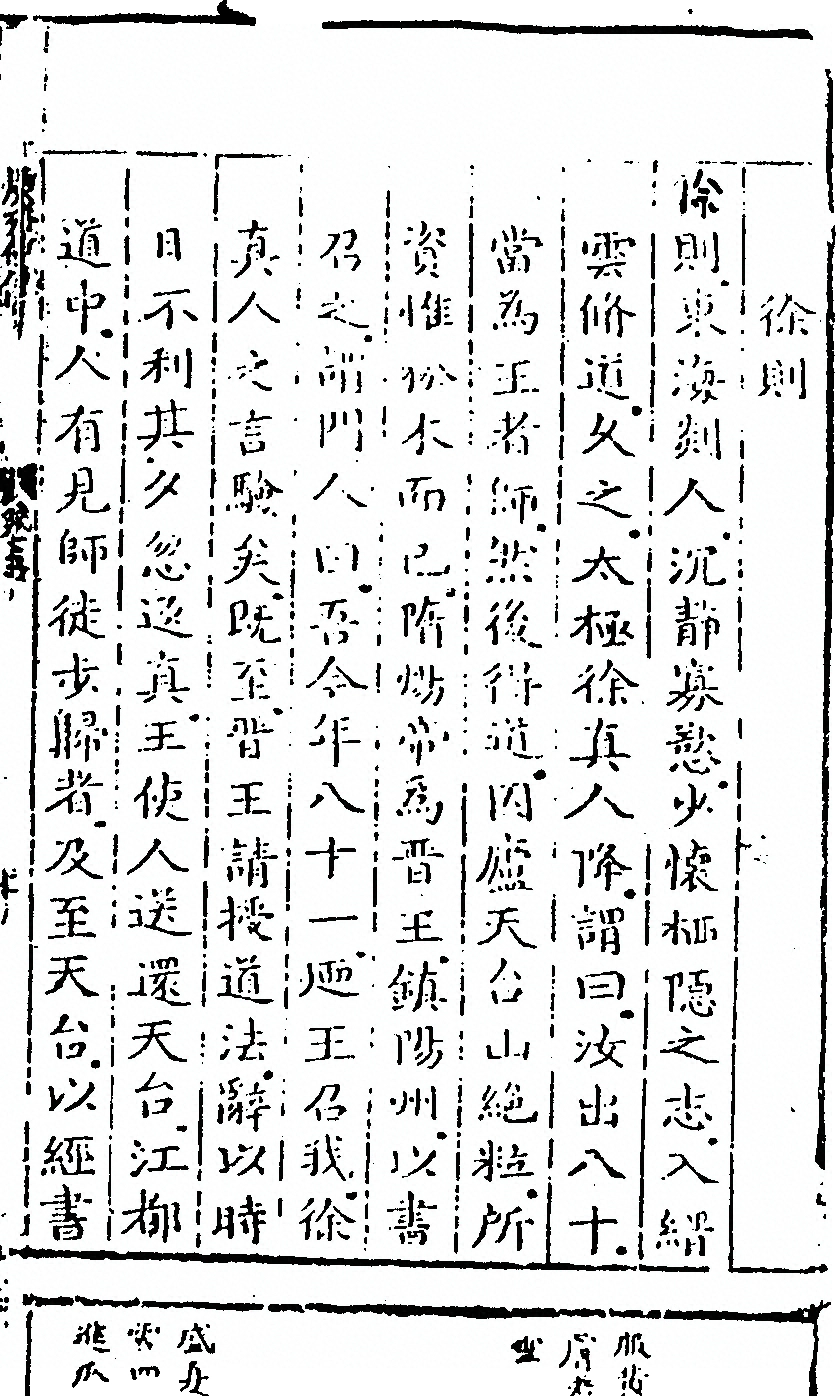 徐則
徐則東海剡人沉静寡慾少懷栖隱之志入縉
雲修道久之太極徐真人降謂曰汝出八十
當為王者師然後得道因廬天台山絶粒所
資惟松木而已隋煬帝為晋王鎮陽州以書
召之謂門人曰吾今年八十一廼王召我徐
真人之言驗矣既至晋王請授道法辭以時
日不利其夕忽返真王使人送還天台江都
道中人有見師徒步歸者及至天台以經書